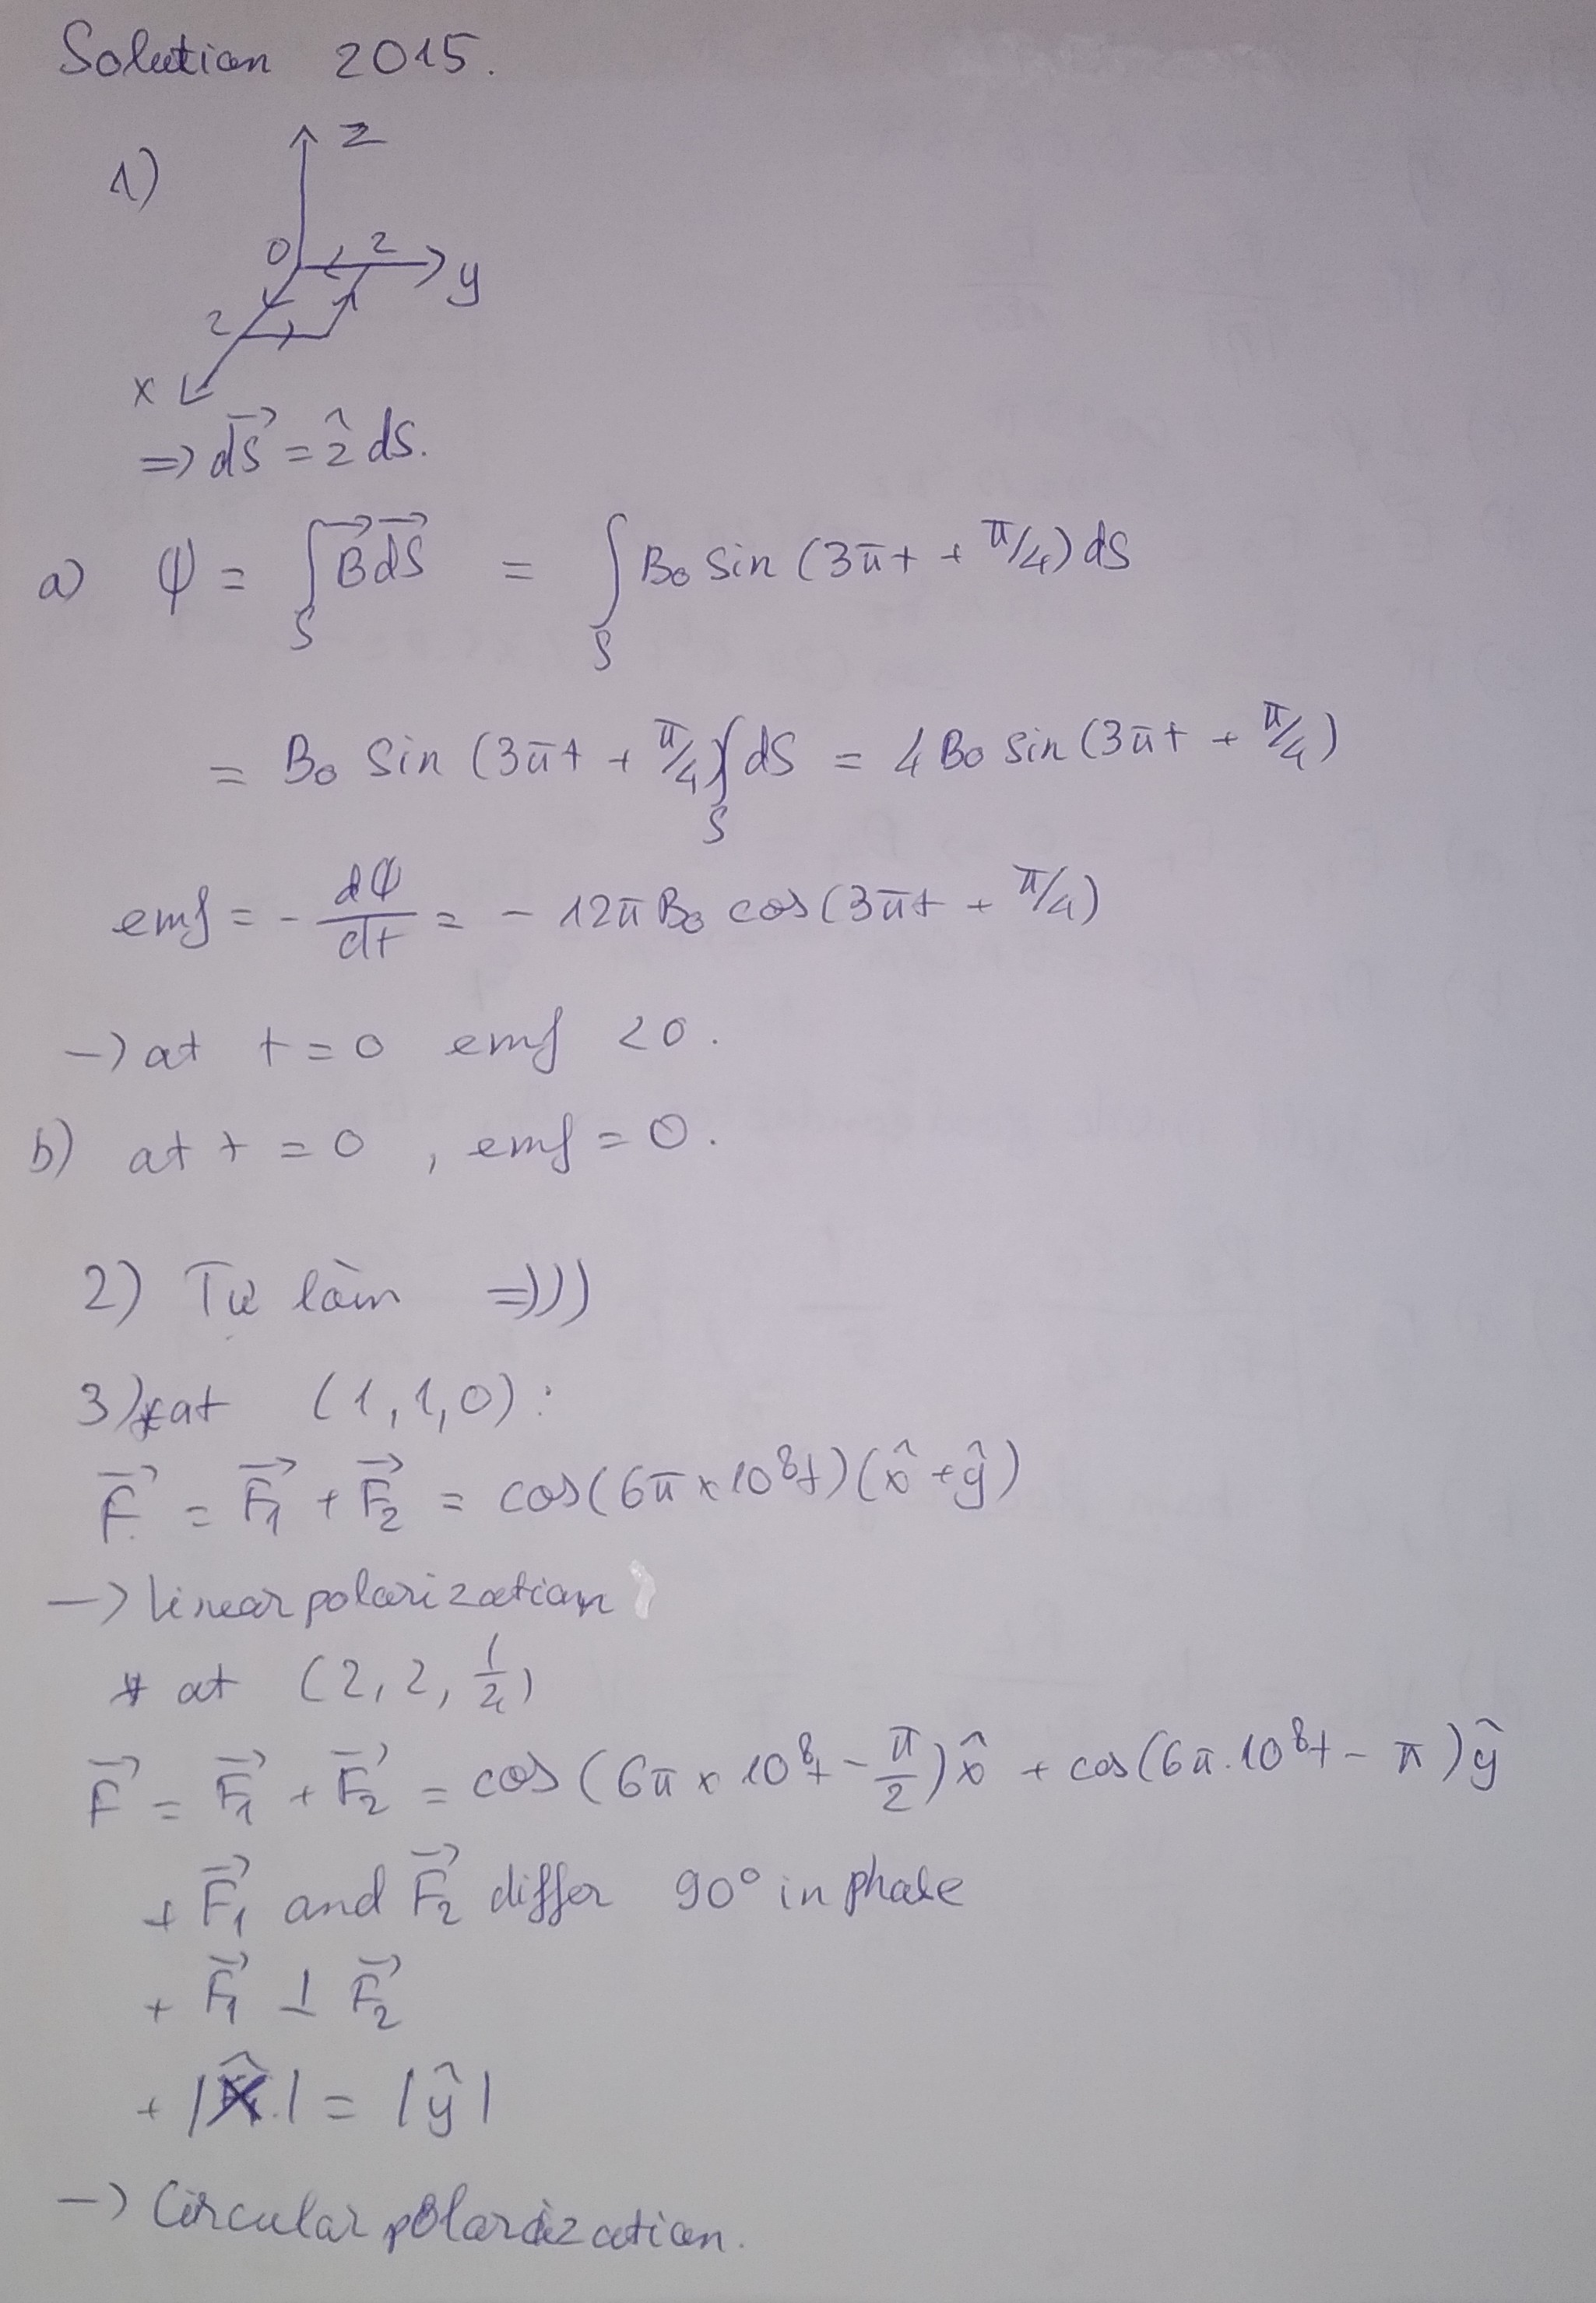 Solution 2015.
1)
z
0 2 y
2
x
=> dS⃗ = ẑ dS.
a) ψ = ∫_S B⃗ dS⃗ = ∫_S B₀ sin (3πt + π/4) dS
= B₀ sin (3πt + π/4) ∫_S dS = 4 B₀ sin (3πt + π/4)
emf = - dψ/dt = - 12π B₀ cos (3πt + π/4)
-> at t = 0 emf < 0.
b) at t = 0, emf = 0.
2) Tự làm =)))
3) * at (1, 1, 0):
F⃗ = F⃗₁ + F⃗₂ = cos(6π x 10⁸t)(x̂ + ŷ)
-> linear polarization
* at (2, 2, 1/4)
F⃗ = F⃗₁ + F⃗₂ = cos (6π x 10⁸t - π/2) x̂ + cos(6π.10⁸t - π) ŷ
+ F⃗₁ and F⃗₂ differ 90° in phase
+ F⃗₁ ⊥ F⃗₂
+ |x̂| = |ŷ|
-> Circular polarization.